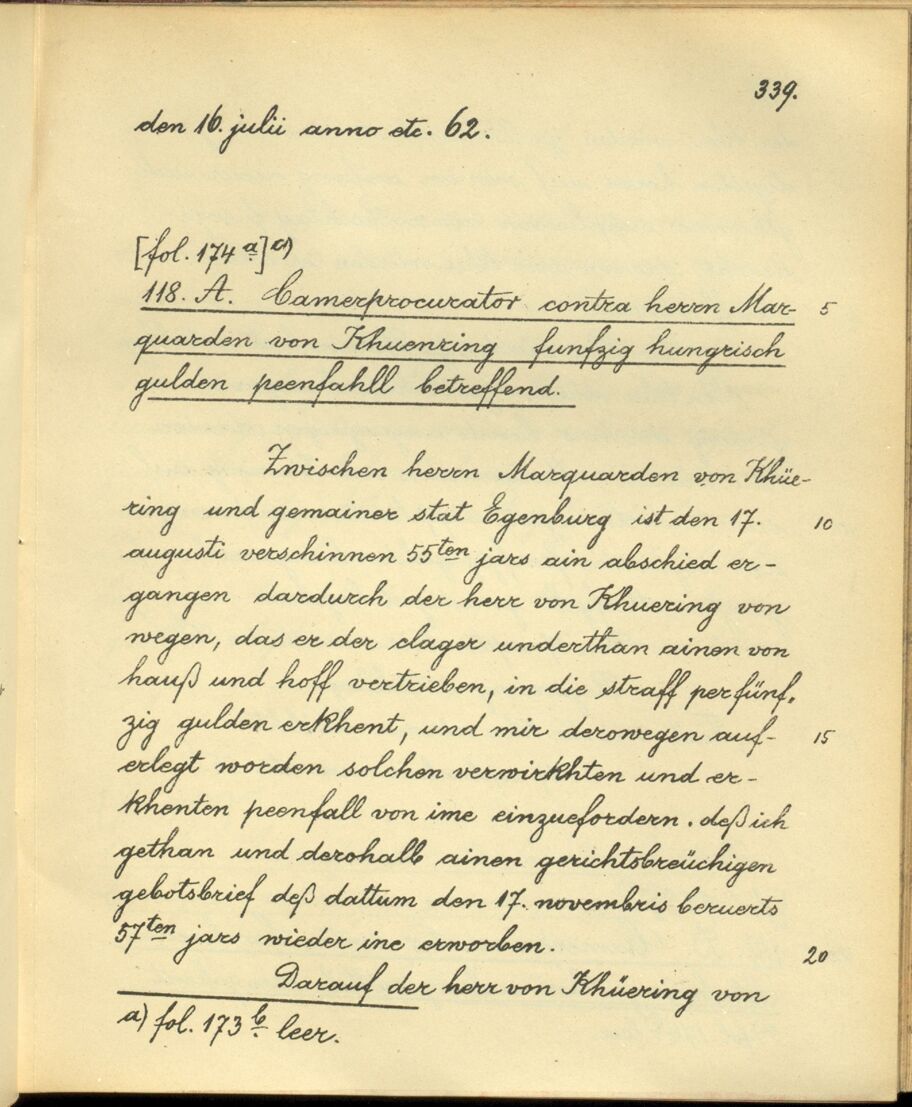 339.
den 16. julii anno etc. 62.
[fol. 174 a.] a)
118. A. Camerprocurator contra herrn Mar- 5
quarden von Khuenring funfzig hungrisch
gulden peenfahll betreffend.
Zwischen herrn Marquarden von Khüe-
ring und gemainer stat Egenburg ist den 17. 10
augusti verschinnen 55ten jars ain abschied er-
gangen dardurch der herr von Khuering von
wegen, das er der clager underthan ainen von
hauß und hoff vertrieben, in die straff per fünf-
zig gulden erkhent, und mir derowegen auf- 15
erlegt worden solchen verwirkhten und er-
khenten peenfall von ime einzuefordern. deß ich
gethan und derohalb ainen gerichtsbreüchigen
gebotsbrief deß dattum den 17. novembris beruerts
57ten jars wieder ine erworben. 20
Darauf der herr von Khüering von
a) fol. 173 b. leer.